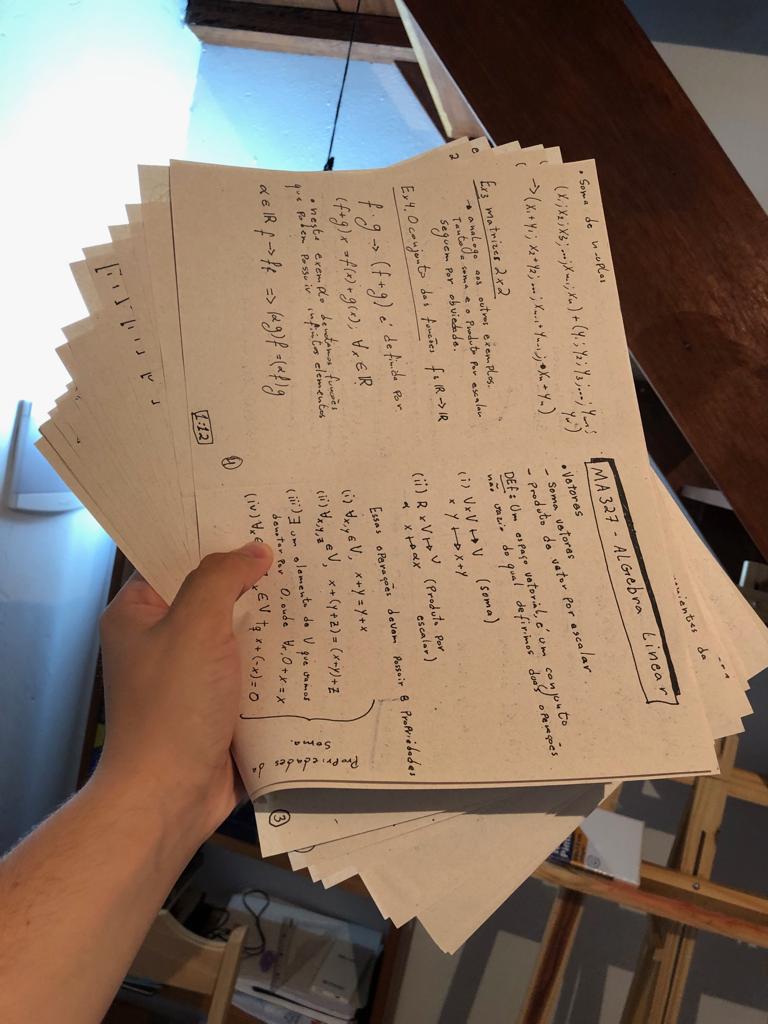 MA327 - ALGebra Linear
• Vetores
- Soma vetores
- produto de vetor por escalar
DEF: Um espaço vetorial, é um conjunto
não vazio do qual definimos duas operações.
(i) V x V ↦ V (soma)
x y ↦ x+y
(ii) R x V ↦ V (produto por
α x ↦ αx escalar)
Essas operações devem possuir 8 propriedades
(i) ∀x,y ∈ V, x+y = y+x
(ii) ∀x,y,z ∈ V, x+(y+z) = (x+y)+z
(iii) ∃ um elemento de V que vamos
denotar por 0, onde ∀x, 0+x = x
(iv) ∀x ∈ V tq x+(-x) = 0
propriedades da
soma.
3
• Soma de n-uplas
(x1; x2; x3; ...; xn-1; xn) + (y1; y2; y3; ...; yn-1; yn)
→ (x1+y1; x2+y2; ...; xn-1+yn-1; xn+yn)
Ex3 matrizes 2x2
→ análogo aos outros exemplos.
Tanto a soma e o produto por escalar
seguem por obviedade.
Ex4. O conjunto das funções f: R → R
f.g → (f+g) é definida por
(f+g)x = f(x)+g(x), ∀x ∈ R
• neste exemplo denotamos funções
que podem possuir infinitos elementos
α ∈ R f → αf => (αg)f = (αf)g
1:12
4